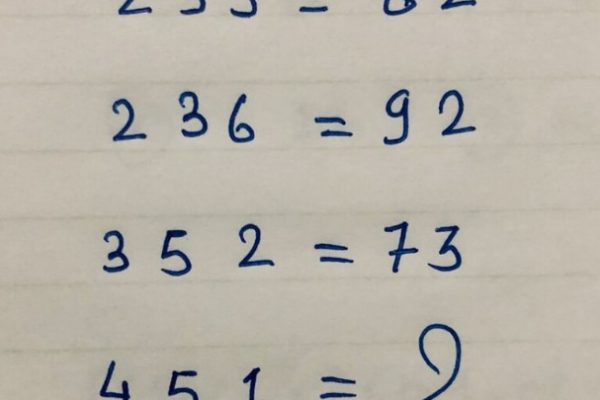 2 3 6 = 92
3 5 2 = 73
4 5 1 = ?